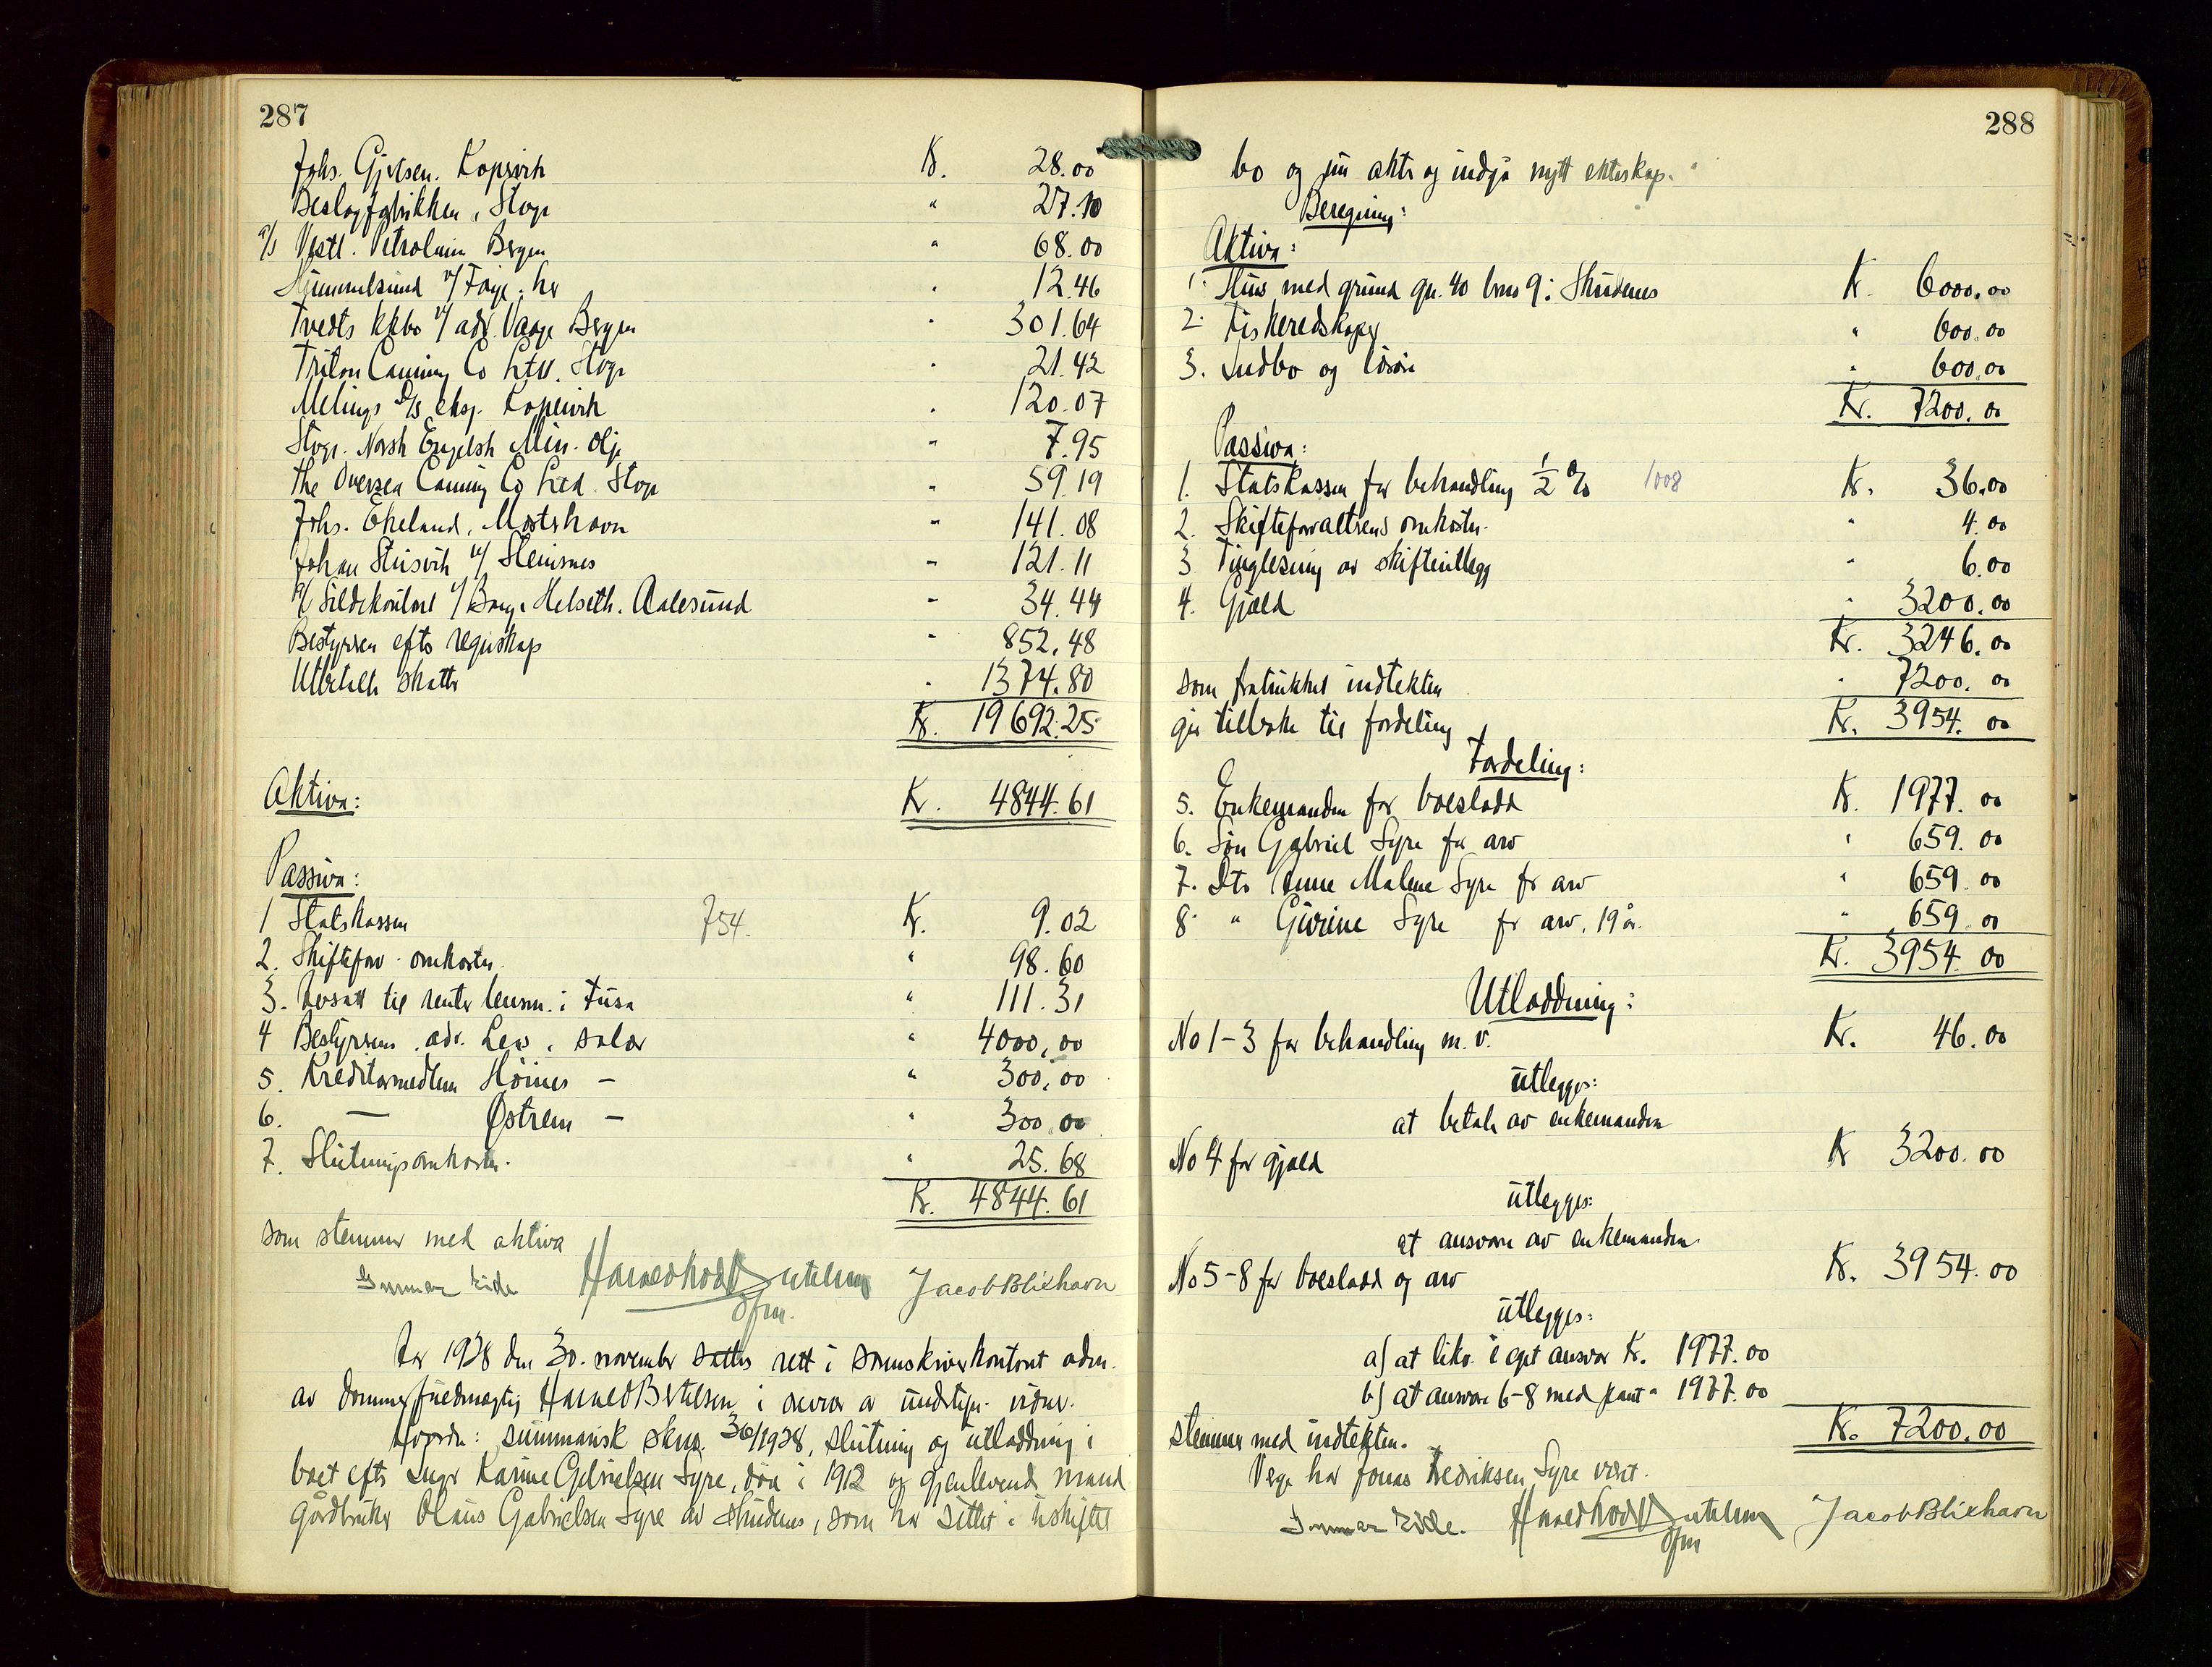 287
Johs. Gjelsen. Kopervik Kr. 28.00
Beslagfabrikken, Stvgr " 27.10
a/s Vestl. Petroleum Bergen " 68.00
Hummelsund v/ " 12.46
Tvedts kkbo v/ adv. Vaage Bergen " 301.64
Triton Canning Co Ltd. Stvgr " 21.42
Melings D/S eksp. Kopervik " 120.07
Stvgr. Norsk Engelsk Min. olje " 7.95
The Oversea Canning Co Ltd. Stvgr " 59.19
Johs. Ekeland, Mosterhavn " 141.08
Johan Stusvik v/ Steinsnes " 121.11
A/L Sildekontoret v/ Helseth. Aalesund " 34.44
Bestyreren efter regnskap " 852.48
Utbetalte skatter " 1374.80
Kr. 19692.25
Aktiva: Kr. 4844.61
Passiva:
1 Statskassen 754. Kr. 9.02
2. Skifteforv. omkostn. " 98.60
3. Avsatt til renter lensm. i Fusa " 111.31
4 Bestyreren, adv. Lea, salær " 4000.00
5. Kreditormedlem Høines — " 300.00
6. — Østrem — " 300.00
7. Slutningsomkostn. " 25.68
Kr. 4844.61
som stemmer med aktiva
Gunnar Eide Harald Rodt Bertelsen Jacob Blixhavn
dfm.
År 1938 den 30. november sattes rett i sorenskriverkontoret adm.
av dommerfuldmægtig Harald Bertelsen i nærvær av undertegn. vidner.
Hvorda: summarisk skn. 36/1938, slutning og utloddning i
boet efter Inger Karine Gabrielsen Syre, død i 1912 og gjenlevende mand
gårdbruker Olaus Gabrielsen Syre av Skudenes, som har sittet i uskiftet
288
bo og nu akter og indgå nytt ekteskap.
Beregning:
Aktiva:
1. Hus med grund gn. 40 bno 9 i Skudenes K. 6000.00
2. Fiskeredskaper " 600.00
3. Indbo og løsøre " 600.00
Kr. 7200.00
Passiva:
1. Statskassen for behandling 1/2 % 1008 Kr. 36.00
2. Skifteforvalterens omkostn. " 4.00
3 Tinglesning av skifteutlegg " 6.00
4. Gjæld " 3200.00
Kr. 3246.00
som fratrukket indtekten " 7200.00
gir tilbake til fordeling Kr. 3954.00
Fordeling:
5. Enkemanden for boeslodd K. 1977.00
6. Søn Gabriel Syre for arv " 659.00
7. Dtr Anne Malene Syre for arv " 659.00
8. " Gurine Syre for arv, 19 år. " 659.00
Kr. 3954.00
Utloddning:
No 1-3 for behandling m.v. Kr. 46.00
utlegges:
at betale av enkemanden
No 4 for gjæld K 3200.00
utlegges:
at ansvare av enkemanden
No 5-8 for boeslodd og arv Kr. 3954.00
utlegges:
a) at likv. i eget ansvar Kr. 1977.00
b) at ansvare 6-8 med pant " 1977.00
stemmer med indtekten. Kr. 7200.00
Verge har Jonas Fredriksen Syre vært.
Gunnar Eide. Harald Rodt Bertelsen Jacob Blixhavn
dfm